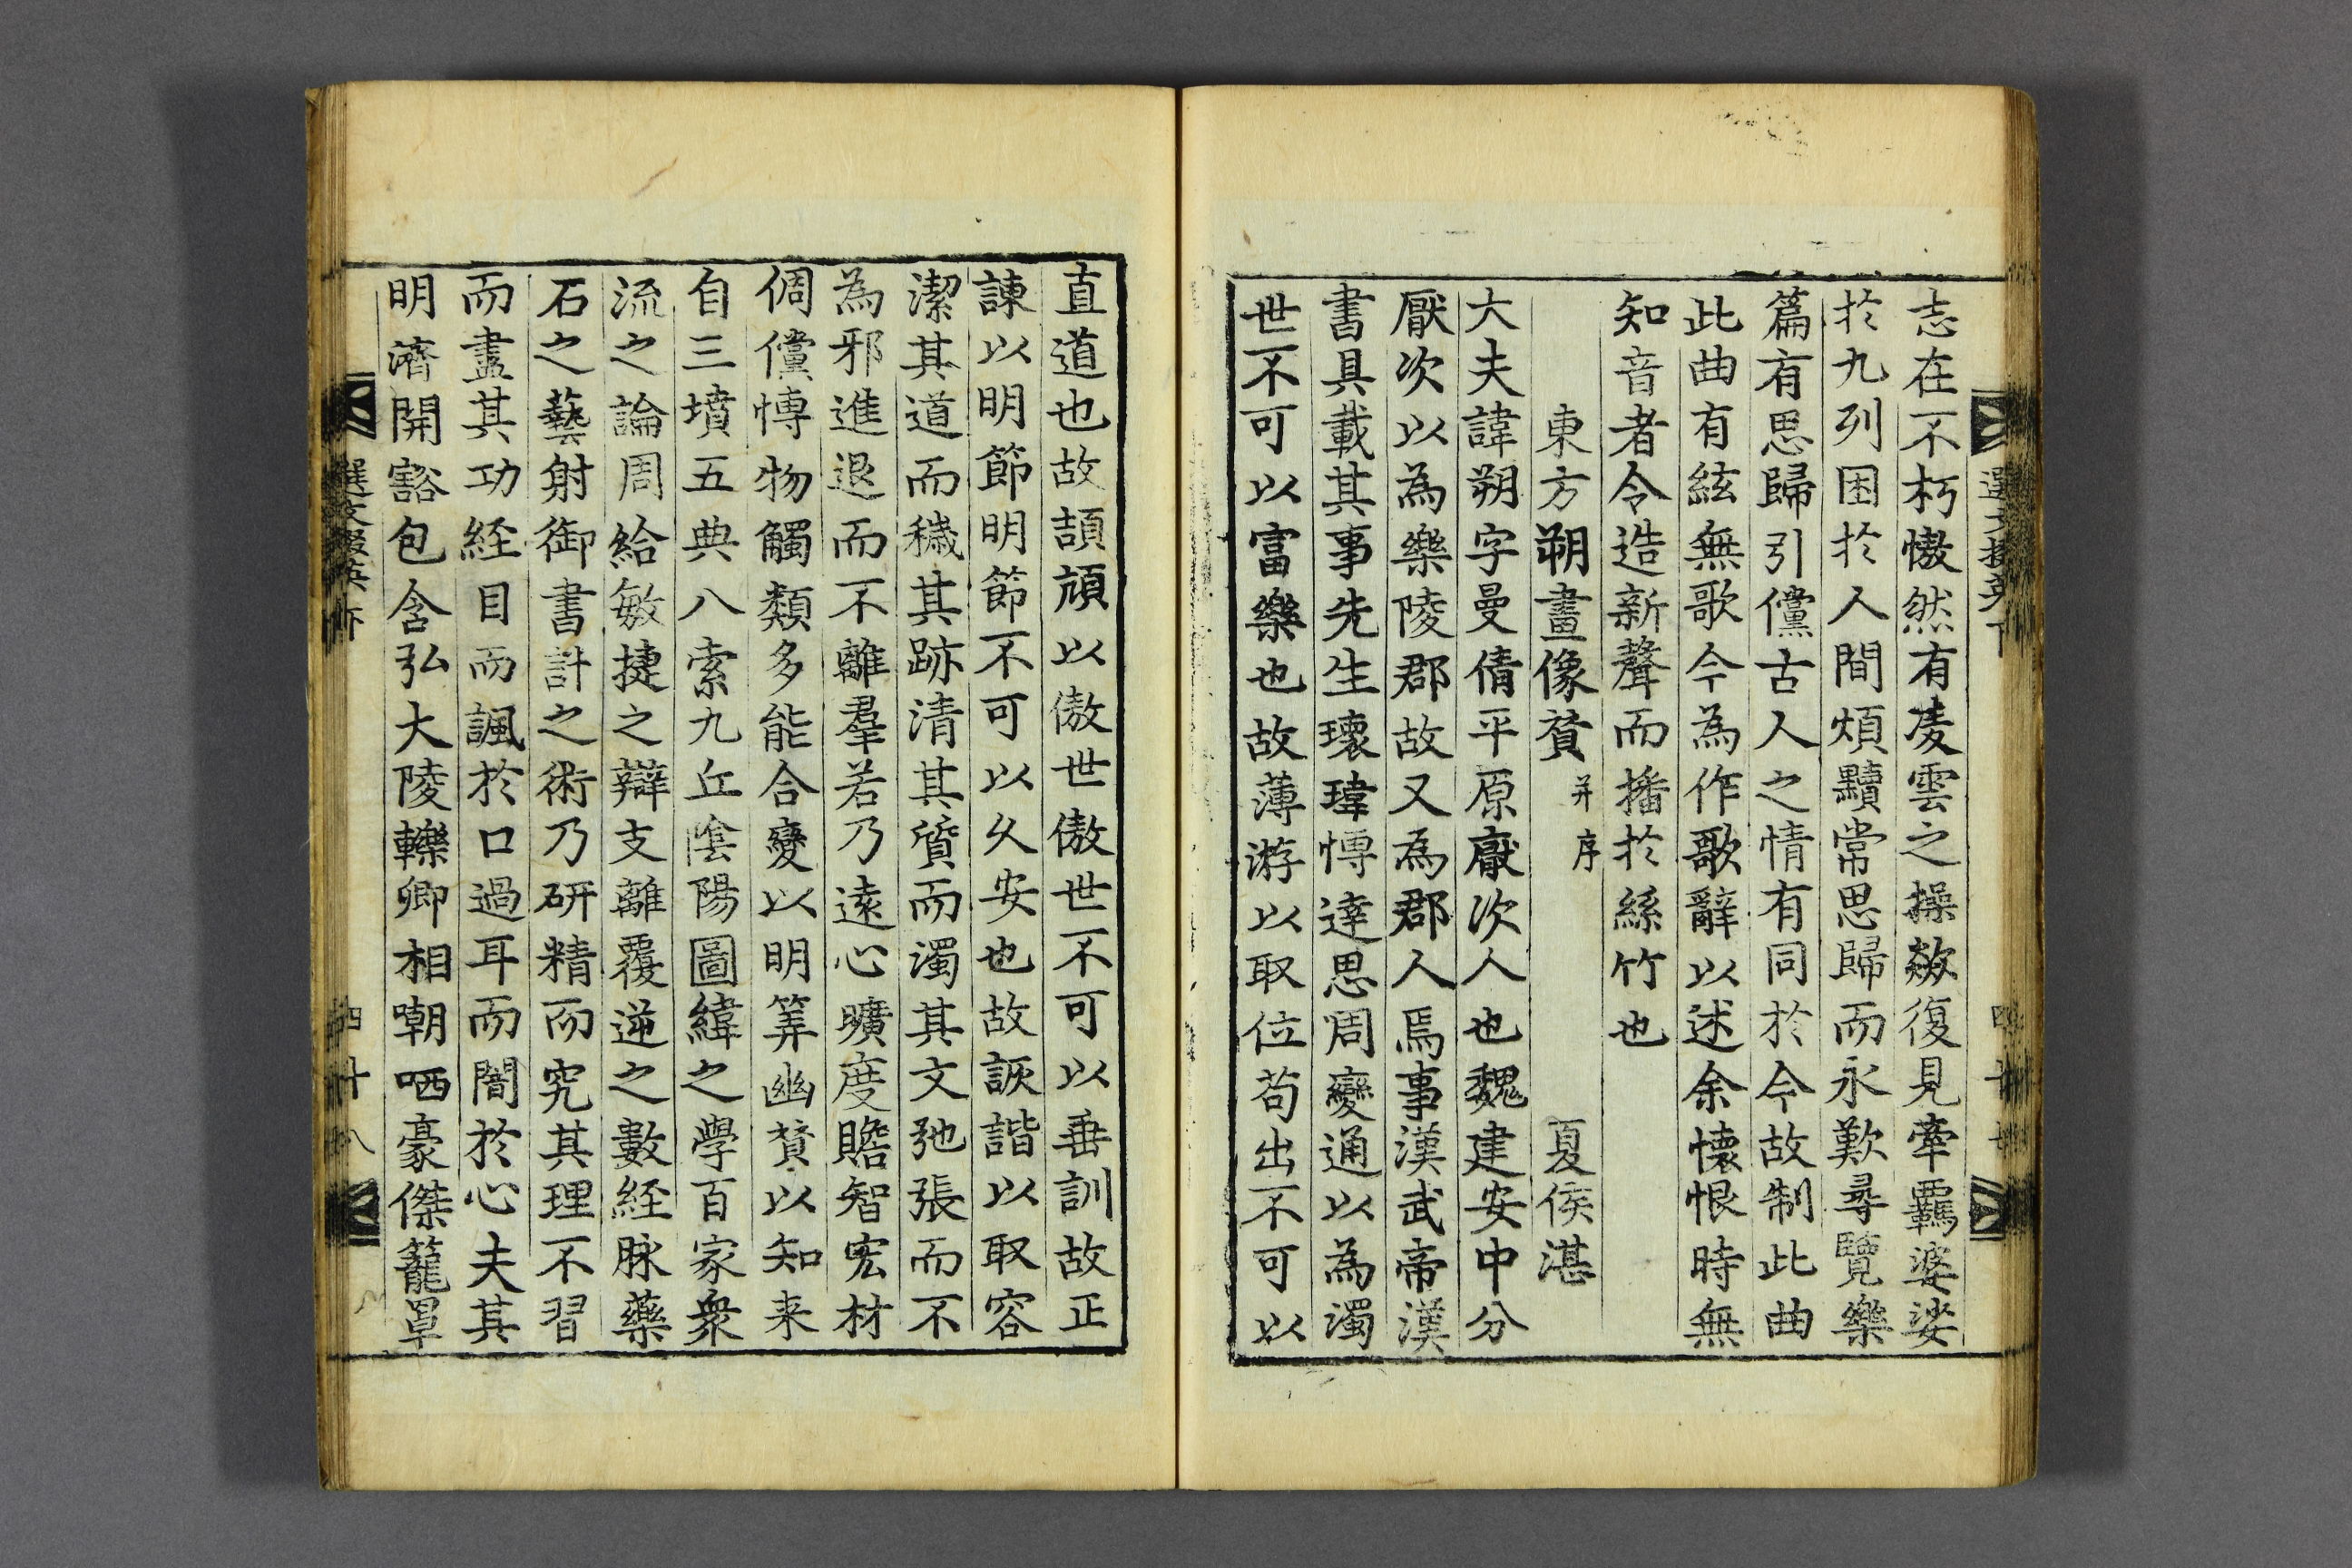 志在不朽慠然有凌雲之操欻復見牽羈婆娑
於九列困於人間煩黷常思歸而永歎尋覽樂
篇有思歸引儻古人之情有同於今故制此曲
此曲有絃無歌今為作歌辭以述余懷恨時無
知音者令造新聲而播於絲竹也
東方朔畫像賛并序 夏侯湛
大夫諱朔字曼倩平原厭次人也魏建安中分
厭次以為樂陵郡故又為郡人焉事漢武帝漢
書具載其事先生瓌瑋博達思周變通以為濁
世不可以富樂也故薄游以取位苟出不可以
直道也故頡頏以傲世傲世不可以垂訓故正
諫以明節明節不可以久安也故詼諧以取容
潔其道而穢其跡清其質而濁其文弛張而不
為邪進退而不離羣若乃遠心曠度贍智宏材
倜儻博物觸類多能合變以明筭幽賛以知来
自三墳五典八索九丘陰陽圖緯之學百家衆
流之論周給敏捷之辯支離覆逆之數経脉藥
石之藝射御書計之術乃研精而究其理不習
而盡其功経目而諷於口過耳而闇於心夫其
明濟開豁包含弘大陵轢卿相嘲哂豪傑籠罩
四十八